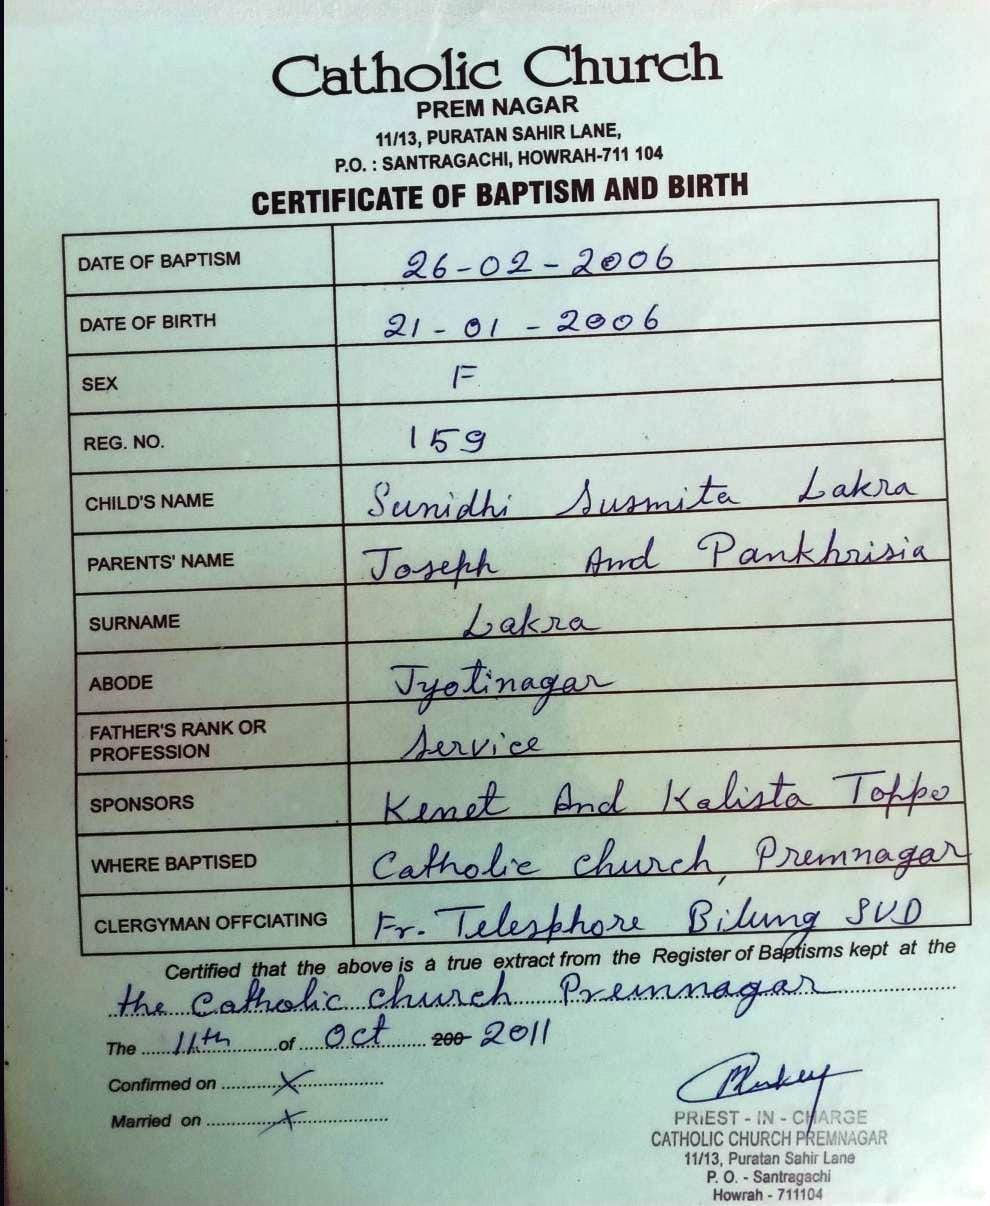 Catholic Church
PREM NAGAR
11/13, PURATAN SAHIR LANE,
P.O. : SANTRAGACHI, HOWRAH-711 104
CERTIFICATE OF BAPTISM AND BIRTH
DATE OF BAPTISM 26-02-2006
DATE OF BIRTH 21-01-2006
SEX F
REG. NO. 159
CHILD'S NAME Sunidhi Susmita Lakra
PARENTS' NAME Joseph And Pankhrisia
SURNAME Lakra
ABODE Jyotinagar
FATHER'S RANK OR
PROFESSION Service
SPONSORS Kenet And Kalista Toppo
WHERE BAPTISED Catholic church, Premnagar
CLERGYMAN OFFCIATING Fr. Telesphore Bilung SVD
Certified that the above is a true extract from the Register of Baptisms kept at the
the Catholic church Premnagar
The 11th of Oct 200 2011
Confirmed on X
Married on X
PRIEST - IN - CHARGE
CATHOLIC CHURCH PREMNAGAR
11/13, Puratan Sahir Lane
P. O. - Santragachi
Howrah - 711104